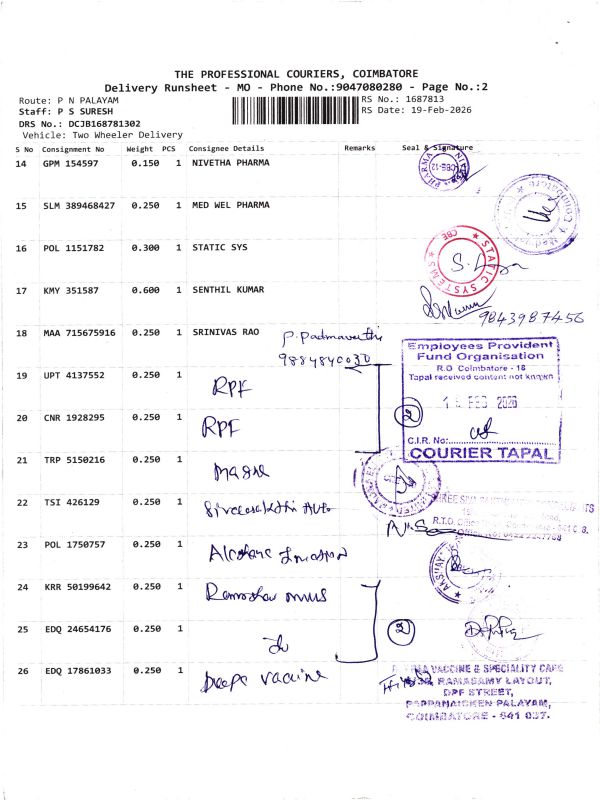 THE PROFESSIONAL COURIERS, COIMBATORE
Delivery Runsheet - MO - Phone No.:9047080280 - Page No.:2
Route: P N PALAYAM
RS No.: 1687813
Staff: P S SURESH
RS Date: 19-Feb-2026
DRS No.: DCJB168781302
Vehicle: Two Wheeler Delivery
S No Consignment No Weight PCS Consignee Details Remarks Seal & Signature
14 GPM 154597 0.150 1 NIVETHA PHARMA
15 SLM 389468427 0.250 1 MED WEL PHARMA
16 POL 1151782 0.300 1 STATIC SYS
STATIC SYSTEMS CBE
17 KMY 351587 0.600 1 SENTHIL KUMAR
9843987456
18 MAA 715675916 0.250 1 SRINIVAS RAO P. Padmavathi
9884840030
Employees Provident
Fund Organisation
R.O. Coimbatore - 18
Tapal received content not known
FEB 2026
C.I.R. No:
COURIER TAPAL
19 UPT 4137552 0.250 1 RPF
20 CNR 1928295 0.250 1 RPF
2
21 TRP 5150216 0.250 1
22 TSI 426129 0.250 1 Auto
23 POL 1750757 0.250 1
24 KRR 50199642 0.250 1
25 EDQ 24654176 0.250 1
2
26 EDQ 17861033 0.250 1 Deepa vaccine
VACCINE & SPECIALITY CARE
RAMASAMY LAYOUT,
DPF STREET,
PAPPANAICKEN PALAYAM,
COIMBATORE - 641 037.